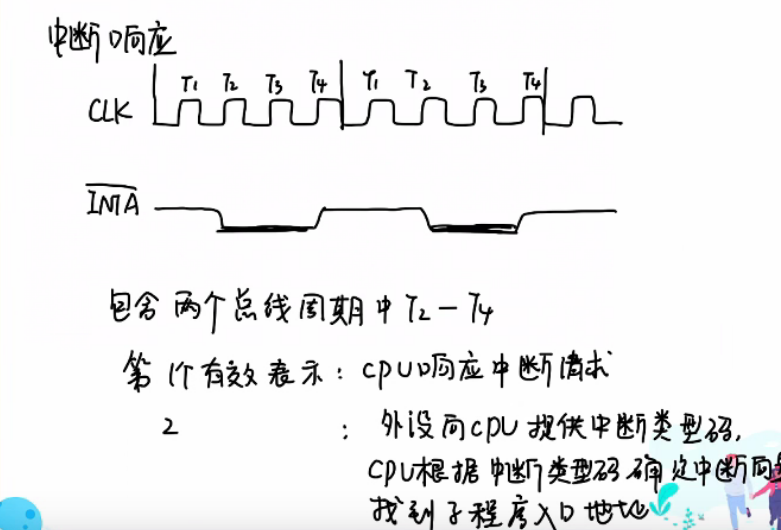 中断响应
T1 T2 T3 T4 T1 T2 T3 T4
CLK
INTA
包含两个总线周期中T2-T4
第1个有效表示:CPU响应中断请求
2 :外设向CPU提供中断类型码,
CPU根据中断类型码确定中断向量
找到子程序入口地址